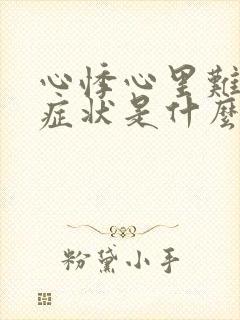 心悸心里難
症状是什麼
粉黛小手